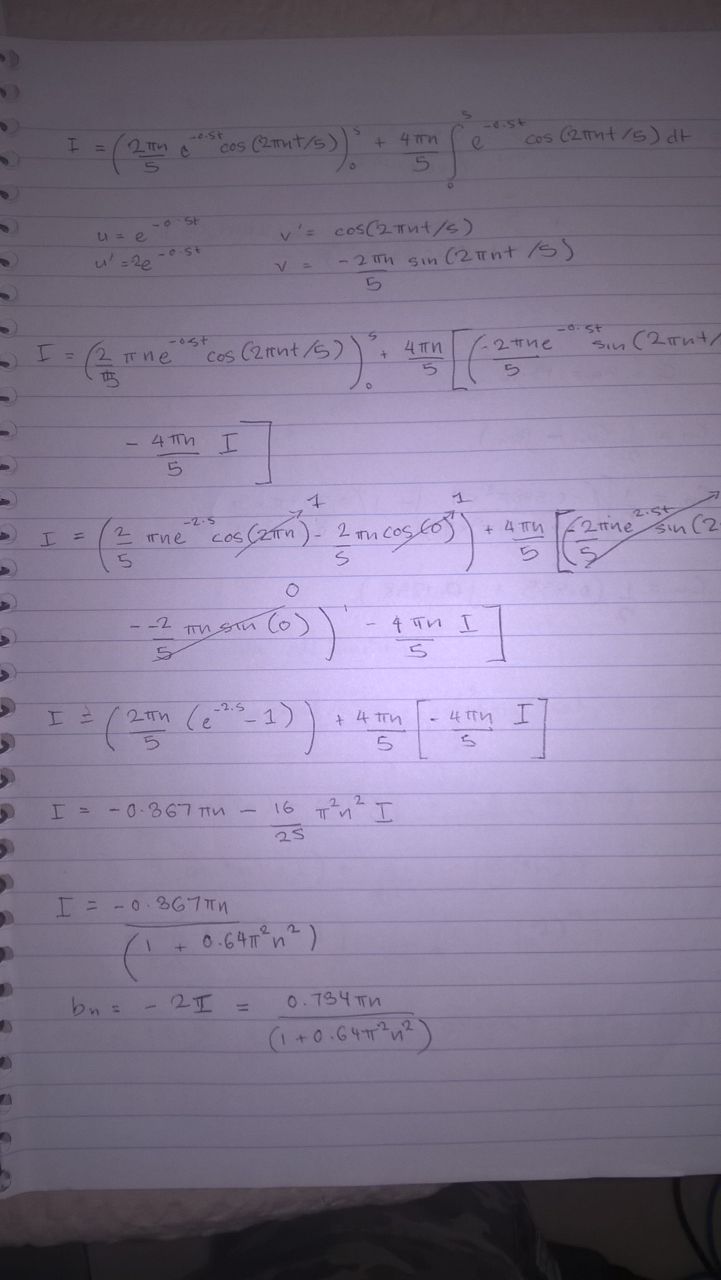 I = (2πn/5 e^-0.5t cos(2πnt/5))₀⁵ + 4πn/5 ∫₀⁵ e^-0.5t cos(2πnt/5) dt
u = e^-0.5t v' = cos(2πnt/5)
u' = 2e^-0.5t v = -2πn/5 sin(2πnt/5)
I = (2/5 πne^-0.5t cos(2πnt/5))₀⁵ + 4πn/5 [(-2πne^-0.5t/5 sin(2πnt/
- 4πn/5 I]
I = (2/5 πne^-2.5 cos(2πn) 1 - 2/5 πn cos(0) 1) + 4πn/5 [(-2πne^2.5t/5 sin(2
- -2/5 πn sin(0) 0) - 4πn/5 I]
I = (2πn/5 (e^-2.5 - 1)) + 4πn/5 [- 4πn/5 I]
I = -0.367πn - 16/25 π²n² I
I = -0.367πn/(1 + 0.64π²n²)
bn = -2I = 0.734πn/(1+0.64π²n²)